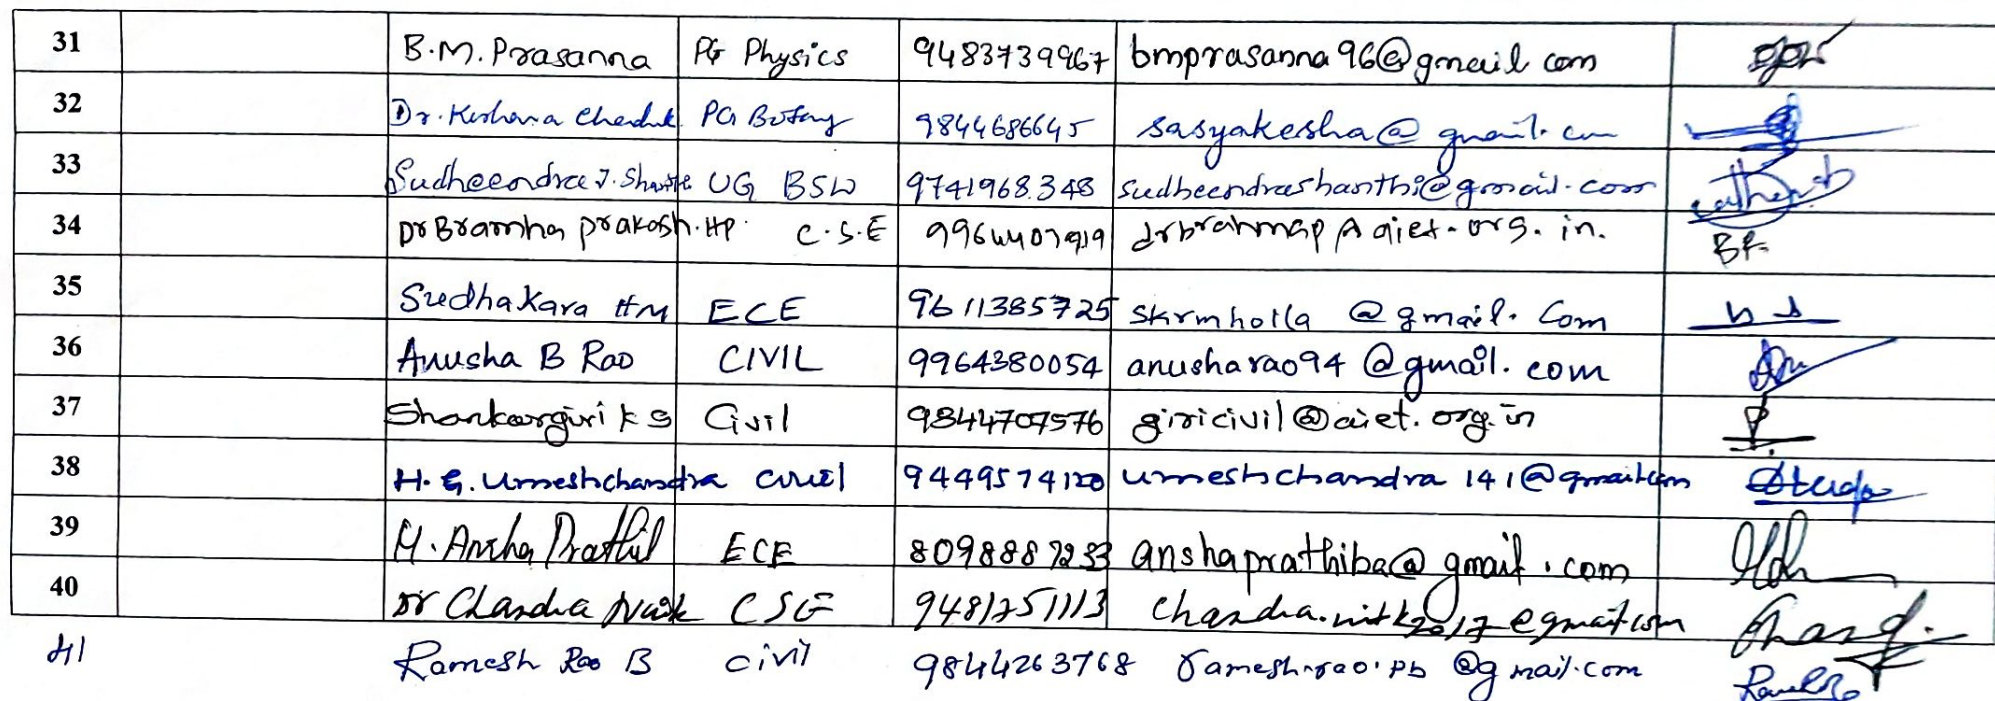 31 B.M. Prasanna PG Physics 9483739967 bmprasanna96@gmail com
32 Dr. PG Botany 9844686645 sasyakesha@gmail.com
33 Sudheendra J. UG BSW 9741968348 sudheendrashanthi@gmail.com
34 Dr Bramha prakash. HP. C.S.E drbrahmap A aiet.org.in.
35 Sudhakara HM ECE 9611385725 skrmholla @gmail.com
36 Anusha B Rao CIVIL 9964380054 anusharao94@gmail.com
37 Shankargiri K S Civil 9844707576 giricivil@aiet.org.in
38 H.G. Umeshchandra civil 9449574120 umeshchandra141@gmail.com
39 H. Ansha Prathib ECE anshaprathiba@gmail.com
40 Dr Chandra Naik CSE 9481751113 chandra.nitk2017@gmail.com
41 Ramesh Rao B civil 9844263768 ramesh.rao.pb@gmail.com